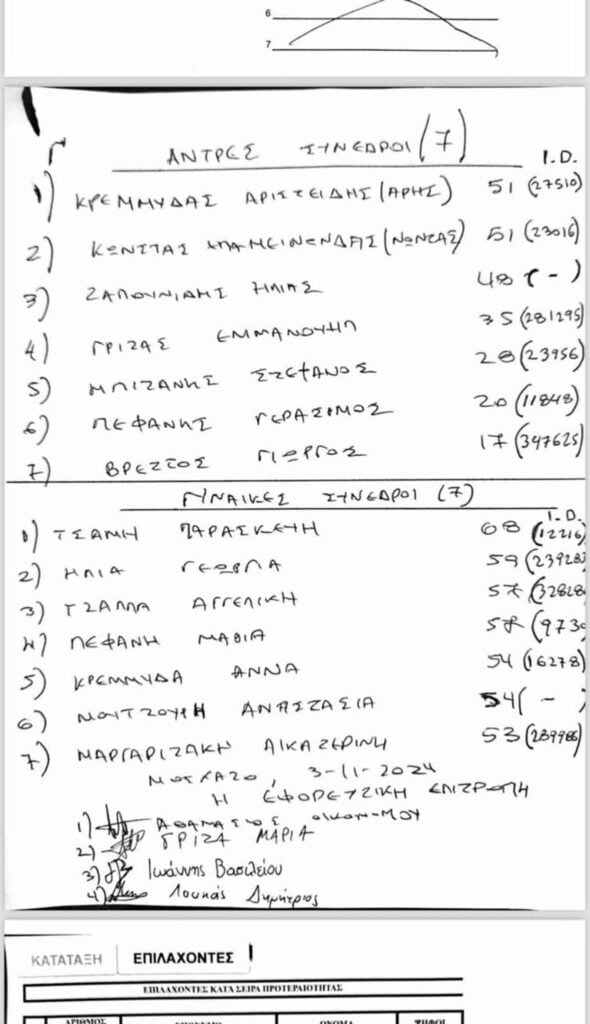 6
7
ΑΝΤΡΕΣ ΣΥΝΕΔΡΟΙ (7)
I.D.
1) ΚΡΕΜΜΥΔΑΣ ΑΡΙΣΤΕΙΔΗΣ (ΑΡΗΣ) 51 (27510)
2) ΚΩΝΣΤΑΣ ΕΠΑΜΕΙΝΩΝΔΑΣ (ΝΩΝΤΑΣ) 51 (23016)
3) ΖΑΠΟΥΝΙΔΗΣ ΗΛΙΑΣ 48 ( - )
4) ΓΡΙΖΑΣ ΕΜΜΑΝΟΥΗΛ 35 (281295)
5) ΜΠΙΖΑΝΗΣ ΣΤΕΦΑΝΟΣ 28 (23956)
6) ΠΕΦΑΝΗΣ ΓΕΡΑΣΙΜΟΣ 20 (11848)
7) ΒΡΕΤΤΟΣ ΓΙΩΡΓΟΣ 17 (347625)
ΓΥΝΑΙΚΕΣ ΣΥΝΕΔΡΟΙ (7)
I.D.
1) ΤΣΑΜΗ ΠΑΡΑΣΚΕΥΗ 68 (12216)
2) ΗΛΙΑ ΓΕΩΡΓΙΑ 59
3) ΑΓΓΕΛΙΚΗ (32828
4) ΠΕΦΑΝΗ (9730
5) ΚΡΕΜΜΥΔΑ ΑΝΝΑ 54 (16278)
6) ΜΟΥΤΖΟΥΡΗ ΑΝΑΣΤΑΣΙΑ 54 ( - )
7) ΜΑΡΓΑΡΙΤΑΚΗ ΑΙΚΑΤΕΡΙΝΗ 53
ΜΟΣΧΑΤΟ, 3-11-2024
Η ΕΦΟΡΕΥΤΙΚΗ ΕΠΙΤΡΟΠΗ
1) ΑΘΑΝΑΣΙΟΣ ΟΙΚΟΝ-ΜΟΥ
2) ΓΡΙΖΑ ΜΑΡΙΑ
3) Ιωάννης Βασιλείου
4) Λουκάς Δημήτριος
ΚΑΤΑΤΑΞΗ ΕΠΙΛΑΧΟΝΤΕΣ
ΕΠΙΛΑΧΟΝΤΕΣ ΚΑΤΑ ΣΕΙΡΑ ΠΡΟΤΕΡΑΙΟΤΗΤΑΣ
ΑΡΙΘΜΟΣ ΕΠΩΝΥΜΟ ΟΝΟΜΑ ΨΗΦΟΙ